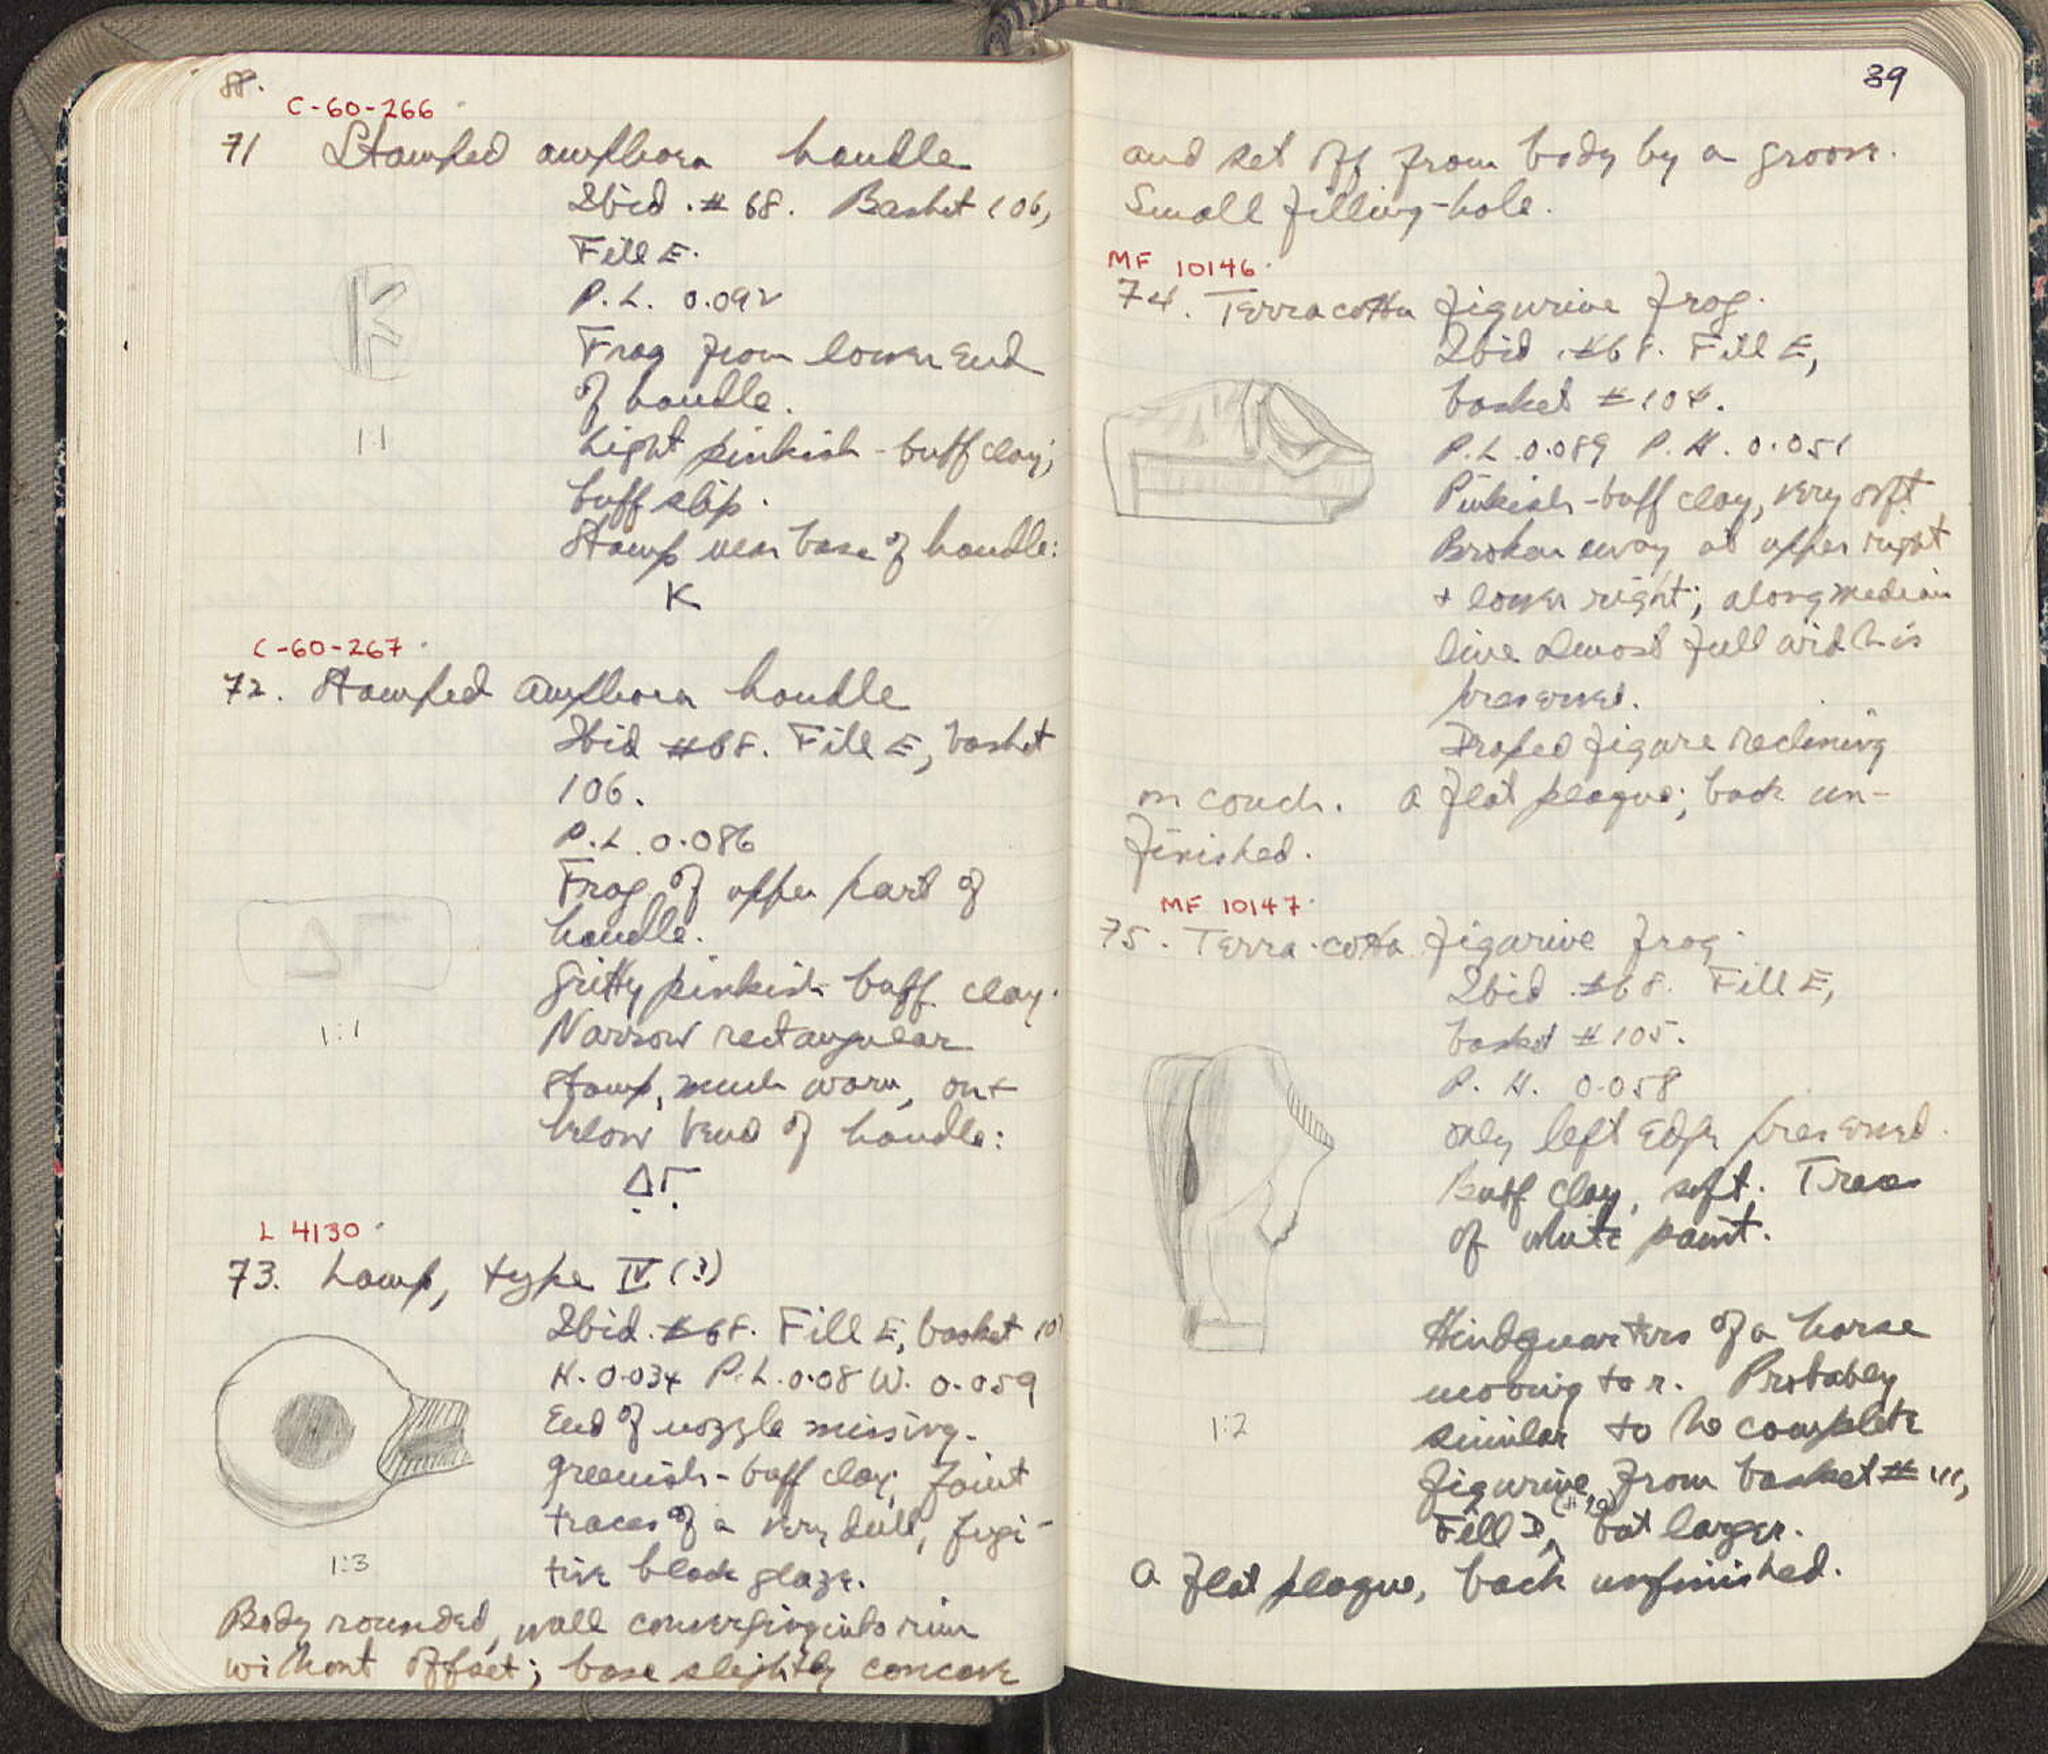 88.
C-60-266
71 Stamped amphora handle
Ibid. #68. Basket 106,
Fill E.
P.L. 0.092
Frag from lower end
of handle.
1:1
Light pinkish-buff clay;
buff slip.
Stamp near base of handle:
K
C-60-267
72. Stamped amphora handle
Ibid #68. Fill E, basket
106.
P.L. 0.086
Frag of upper part of
handle.
Gritty pinkish buff clay.
Narrow rectangular
1:1
stamp, much worn, on +
below bend of handle:
ΔΓ
L 4130
73. Lamp, type IV (?)
Ibid. #68. Fill E, basket
H. 0.034 P.L. 0.08 W. 0.059
End of nozzle missing.
Greenish-buff clay; faint
traces of a very dull, fugi-
tive black glaze.
1:3
Body rounded, wall converging into rim
without offset; base slightly concave
39
and set off from body by a groove.
Small filling-hole.
MF 10146
74. Terracotta figurine frag.
Ibid. #68. Fill E,
basket #104.
P.L. 0.089 P.H. 0.051
Pinkish-buff clay, very soft
Broken away at upper right
+ lower right; along median
line almost full width is
preserved.
Draped figure reclining
on couch. A flat plaque; back un-
finished.
MF 10147
75. Terra-cotta figurine frag.
Ibid. #68. Fill E,
basket #105.
P.H. 0.058
Only left edge preserved.
Buff clay, soft. Traces
of white paint.
Hindquarters of a horse
moving to r. Probably
1:2
similar to the complete
figurine from basket #111,
Fill D, but larger.
A flat plaque, back unfinished.